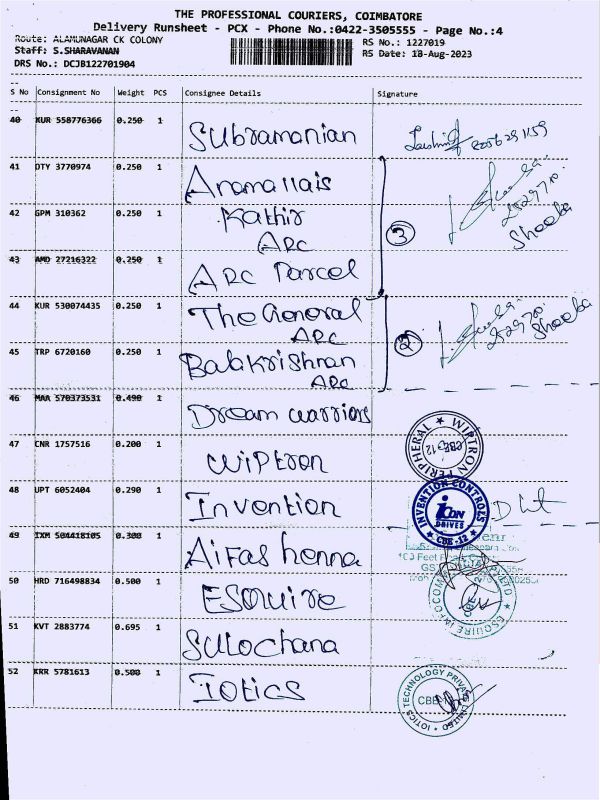 THE PROFESSIONAL COURIERS, COIMBATORE
Delivery Runsheet - PCX - Phone No.:0422-3505555 - Page No.:4
Route: ALAMUNAGAR CK COLONY
RS No.: 1227019
Staff: S.SHARAVANAN
RS Date: 18-Aug-2023
DRS No.: DCJB122701904
S No Consignment No Weight PCS Consignee Details Signature
40 KUR 558776366 0.250 1 Subramanian
41 DTY 3770974 0.250 1 Anamallais
42 GPM 310362 0.250 1 Kathir
ARC
43 AMD 27216322 0.250 1 ARC Parcel
3
Sheeba
44 KUR 530074435 0.250 1 The General
ARC
45 TRP 6720160 0.250 1 Balakrishnan
ARC
2
Sheeba
46 MAA 570373531 0.490 1 Dream warriors
47 CNR 1757516 0.200 1 Wiptron
WIPTRON PERIPHERAL
CBE-12
48 UPT 6052404 0.290 1 Invention
INVENTION CONTROLS
ICON
DRIVES
CBE-12
49 IXM 504418105 0.300 1 Aifas henna
50 HRD 716498834 0.500 1 Esquire
51 KVT 2883774 0.695 1 Sulochana
52 KRR 5781613 0.500 1 Iotics
IOTICS TECHNOLOGY PRIVATE LIMITED